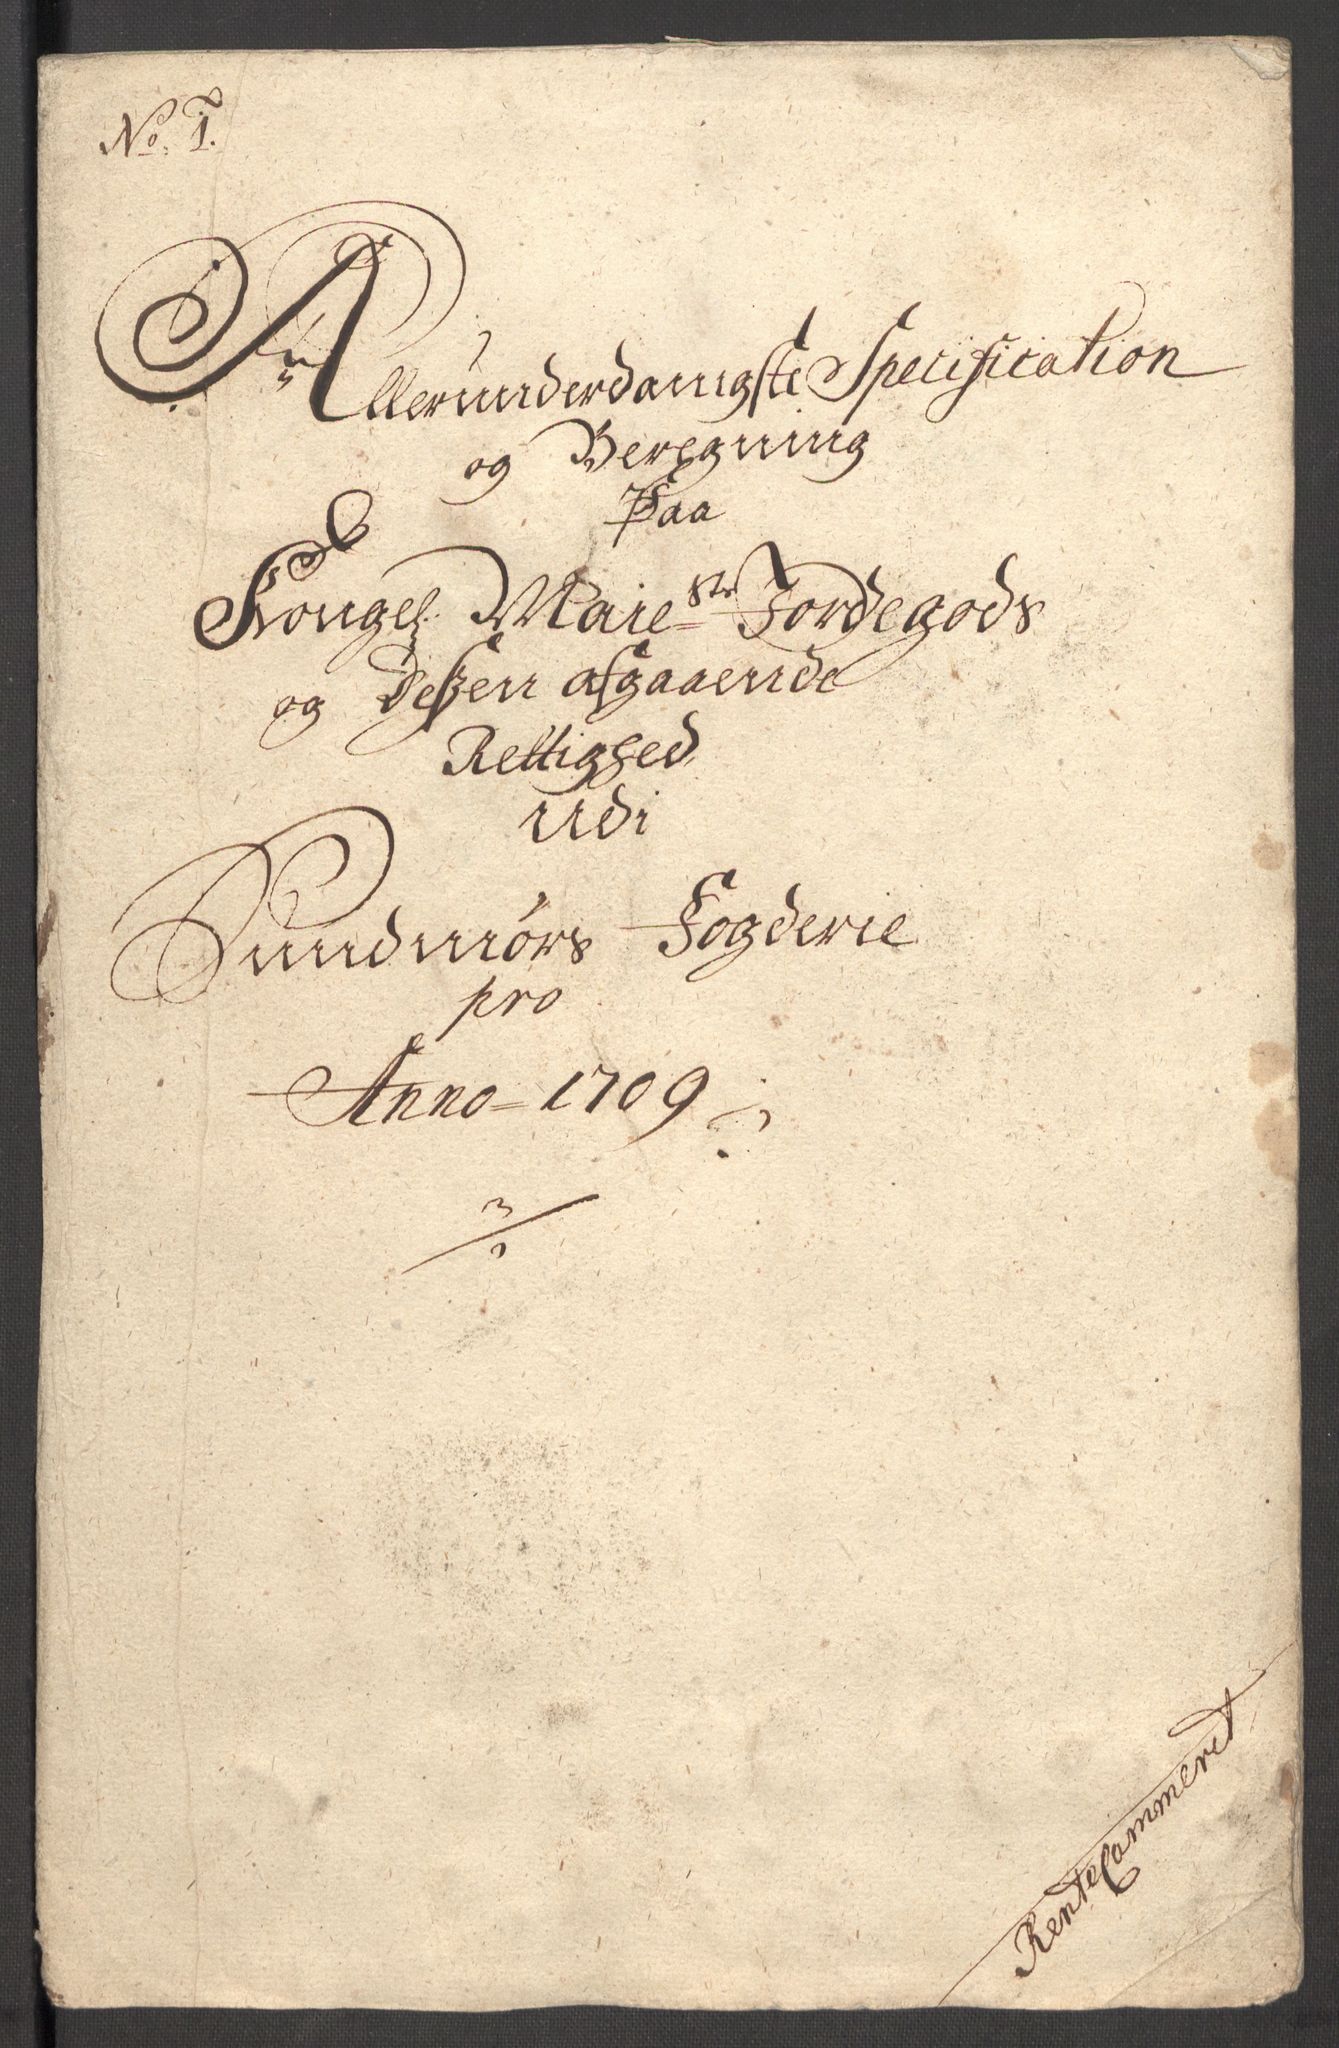 No. 1.
Allerunderdanigste Specification
og Beregning
Paa
Kongel: Maiesti Jordegods
og dessen afgaaende
Rettighed
udi
Sundmörs Fogderie
pro
Anno 1709
RenteCammeret